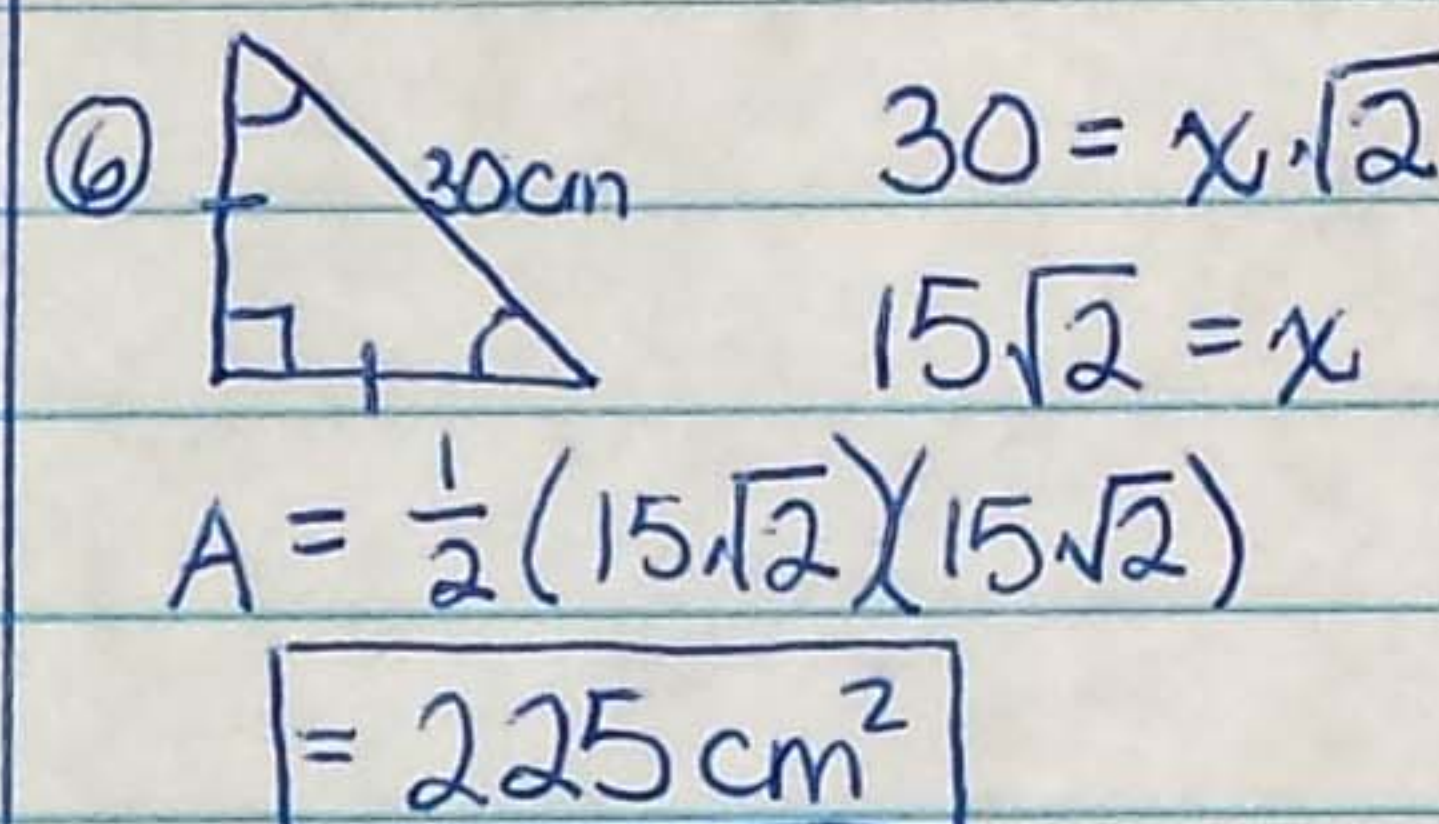 ⑥ 30cm
30 = x√2
15√2 = x
A = 1/2 (15√2)(15√2)
= 225 cm²